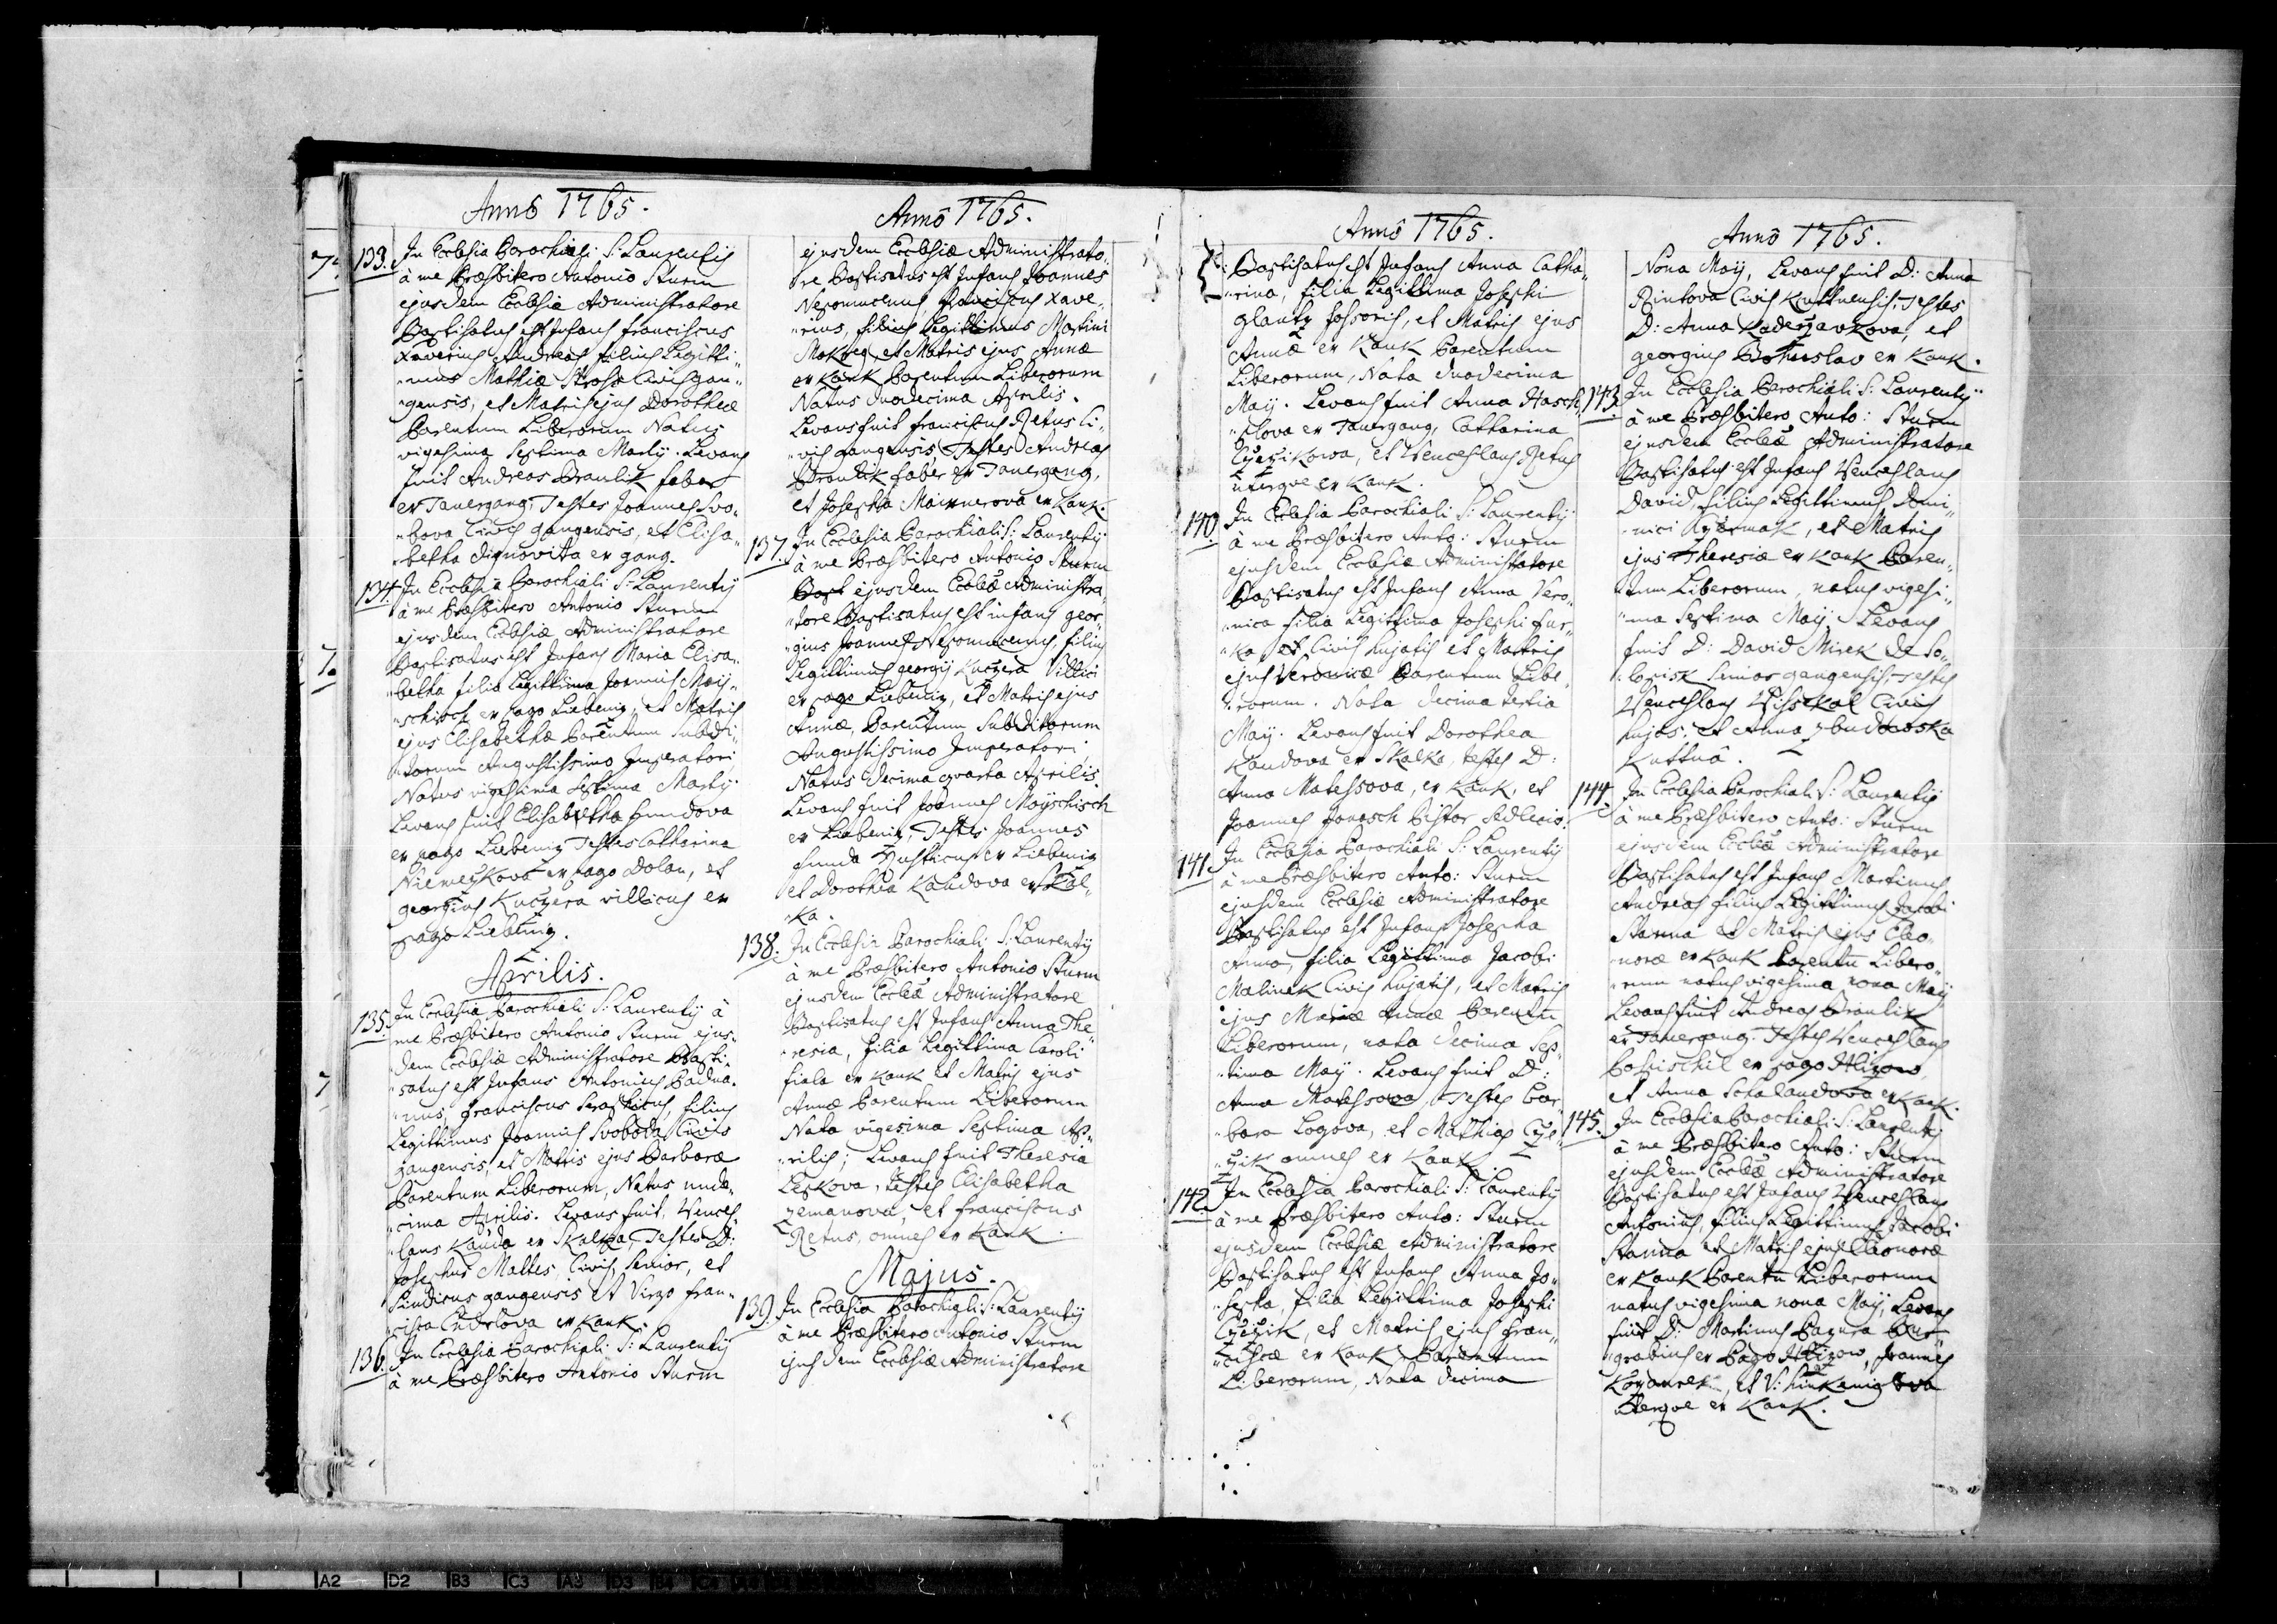 Annô 1765.
133. In Ecclesia Parochiali S: Laurentij
à me Præsbitero Antonio Sturm
ejusdem Ecclesiæ Administratore
Baptisatus est Infans Franciscus
Xaverius Andreas filius Legitti„
„mus Mathiæ Civis gan„
„gensis, et Matris ejus Dorotheæ
Parentum Liberorum Natus
vigesima Septima Martij. Levans
fuit Andreas Braulik faber
ex Tanergang, Testes Joannes Svo„
„bova Civis gangensis, et Elisa„
„betha ex gang.
134. In Ecclesia Parochiali S: Laurentij
à me Præsbitero Antonio Sturm
ejusdem Ecclesiæ Administratore
Baptisatus est Infans Maria Elisa„
„betha filia Legittima Joannis Maij„
„schisch ex pago Liebeniz, et Matris
ejus Elisabethæ Parentum Subdi„
„torum Augustissimo Imperatori
Natus vigesima Septima Martij
Levans fuit Elisabetha Hundova
ex pago Liebeniz Testes Catharina
Niemeczkova ex pago Dolan, et
georgius Kuczera villicus ex
pago Liebeniz.
Aprilis.
135. In Ecclesia Parochiali S: Laurentij à
me Præsbitero Antonio Sturm ejus„
„dem Ecclesiæ Administratore Bapti„
„satus est Infans Antonius Padua„
„nus, Franciscus Seraphicus, filius
Legittimus Joannis Svoboda Civis
gangensis, et Matris ejus Barbaræ
Parentum Liberorum, Natus unde„
„cima Aprilis. Levans fuit, Wences„
„laus Kauda ex Skalka, Testes D:
Josephus Mattes, Civis Senior, et
Sindicus gangensis et Virgo Fran„
„cisca ex Kank.
136. In Ecclesia Parochiali S: Laurentij
à me Præsbitero Antonio Sturm
Annô 1765.
ejusdem Ecclesiæ Administrato„
„re Baptisatus est Infans Joannes
Nepomucenus Franciscus Xave„
„rius, filius Legittimus Martini
Mokreg, et Matris ejus Annæ
ex Kank Parentum Liberorum
Natus duodecima Aprilis.
Levans fuit Franciscus Retus Ci„
„vis gangensis, Testes Andreas
Braulik faber ex Tanergang,
et Josepha Maixnerova ex Kank.
137. In Ecclesia Parochiali S: Laurentij
à me Præsbitero Antonio Sturm
Bapt ejusdem Eccleæ Administra„
„tore Baptisatus est infans geor„
„gius Joannes Nepomucenus, filius
Legittimus georgij Kuczera Villici
ex pago Liebeniz, et Matris ejus
Annæ, Parentum Subditorum
Augustissimo Imperatori
Natus decima quarta Aprilis.
Levans fuit Joannes Moyschisch
ex Liebeniz, Testes Joannes
Hunda Rusticus ex Liebeniz
et Dorothea Kaudova ex Skal„
„ka.
138. In Ecclesia Parochiali S: Laurentij
à me Præsbitero Antonio Sturm
ejusdem Eccleæ Administratore
Baptisatus est Infans Anna The„
„resia, filia Legittima Caroli
fiala ex Kank et Matris ejus
Annæ Parentum Liberorum
Nata vigesima Septima Ap„
„rilis; Levans fuit Theresia
Leskova, Testes Elisabetha
zemanova, et Franciscus
Retus, omnes ex Kank.
Majus.
139. In Ecclesia Parochiali S: Laurentij
à me Præsbitero Antonio Sturm
ejusdem Ecclesiæ Administratore
Annô 1765.
Baptisatus est Infans Anna Catha„
„rina, filia Legittima Josephi
glantz fossoris, et Matris ejus
Annæ ex Kank Parentum
Liberorum, Nata duodecima
Maij. Levans fuit Anna Hasch„
„plova ex Tanergang, Catharina
Czezikowa, et Wenceslaus Retus
uterque ex Kank.
140. In Ecclesia Parochiali S: Laurentij
à me Præsbitero Anto: Sturm
ejusdem Ecclesiæ Administratore
Baptisatus est Infans Anna Vero„
„nica filia Legittima Josephi Fur„
„ka et Civis hujatis et Matris
ejus Veronicæ Parentum Libe„
„rorum. Nata decima tertia
Maij. Levans fuit Dorothea
Kaudova ex Skalka, testes D:
Anna Matessova, ex Kank, et
Joannes Jonasch Pistor Sedlecis.
141. In Ecclesia Parochiali S: Laurentij
à me Præsbitero Anto: Sturm
ejusdem Ecclesiæ Administratore
Baptisatus est Infans Josepha
Anna, filia Legittima Jacobi
Malinek Civis hujatis, et Matris
ejus Mariæ Annæ Parentū
Liberorum, nata decima Sep„
„tima Maij. Levans fuit D:
Anna Matessova, Testes Bar„
„bara Logova, et Mathias Cze„
„zik omnes ex Kank.
142. In Ecclesia Parochiali S: Laurentij
à me Præsbitero Anto: Sturm
ejusdem Ecclesiæ Administratore
Baptisatus est Infans Anna Jo„
„sepha, filia Legittima Josephi
Czezik, et Matris ejus Fran„
„ciscæ ex Kank Parentum
Liberorum, Nata decima
Annô 1765.
Nona Maij, Levans fuit D: Anna
Rintova Civis Kuttnensis, Testes
D: Anna Kaderzavkova, et
georgius Bohuslav ex Kank.
143. In Ecclesia Parochiali S: Laurentij
à me Præsbitero Anto: Sturm
ejusdem Eccleæ Administratore
Baptisatus est Infans Wenceslaus
David, filius Legittimus Domi„
„nici et Matris
ejus Theresiæ ex Kank Paren„
„tum Liberorum, natus vigesi„
„ma Septima Maij. Levans
fuit D: David Mirek de So„
„lopisk Senior gangensis, Testes
Wenceslaus Wissekal Civis
hujas, et Anna zbudowska
Kuttnâ.
144. In Ecclesia Parochiali S: Laurentij
à me Præsbitero Anto: Sturm
ejusdem Eccleæ Administratore
Baptisatus est Infans Martinus
Andreas filius Legittimus Jacobi
Stanna et Matris ejus Eleo„
„noræ ex Kank Parentū Libero„
„rum natus vigesima nona Maij
Levans fuit Andreas Braulik
ex Tanergang. Testes Wenceslaus
Pospischil ex pago Hlizow,
et Anna ex Kank.
145. In Ecclesia Parochiali S: Laurentij
à me Præsbitero Anto: Sturm
ejusdem Eccleæ Administratore
Baptisatus est Infans Wenceslaus
Antonius, filius Legittimus Jacobi
Stanna et Matris ejus Eleonoræ
ex Kank Parentū Liberorum
natus vigesima nona Maij, Levans
fuit D: Martinus Bazura Bur„
„grabius ex Pago Hlizow, Joannes
et V:
uterque ex Kank.